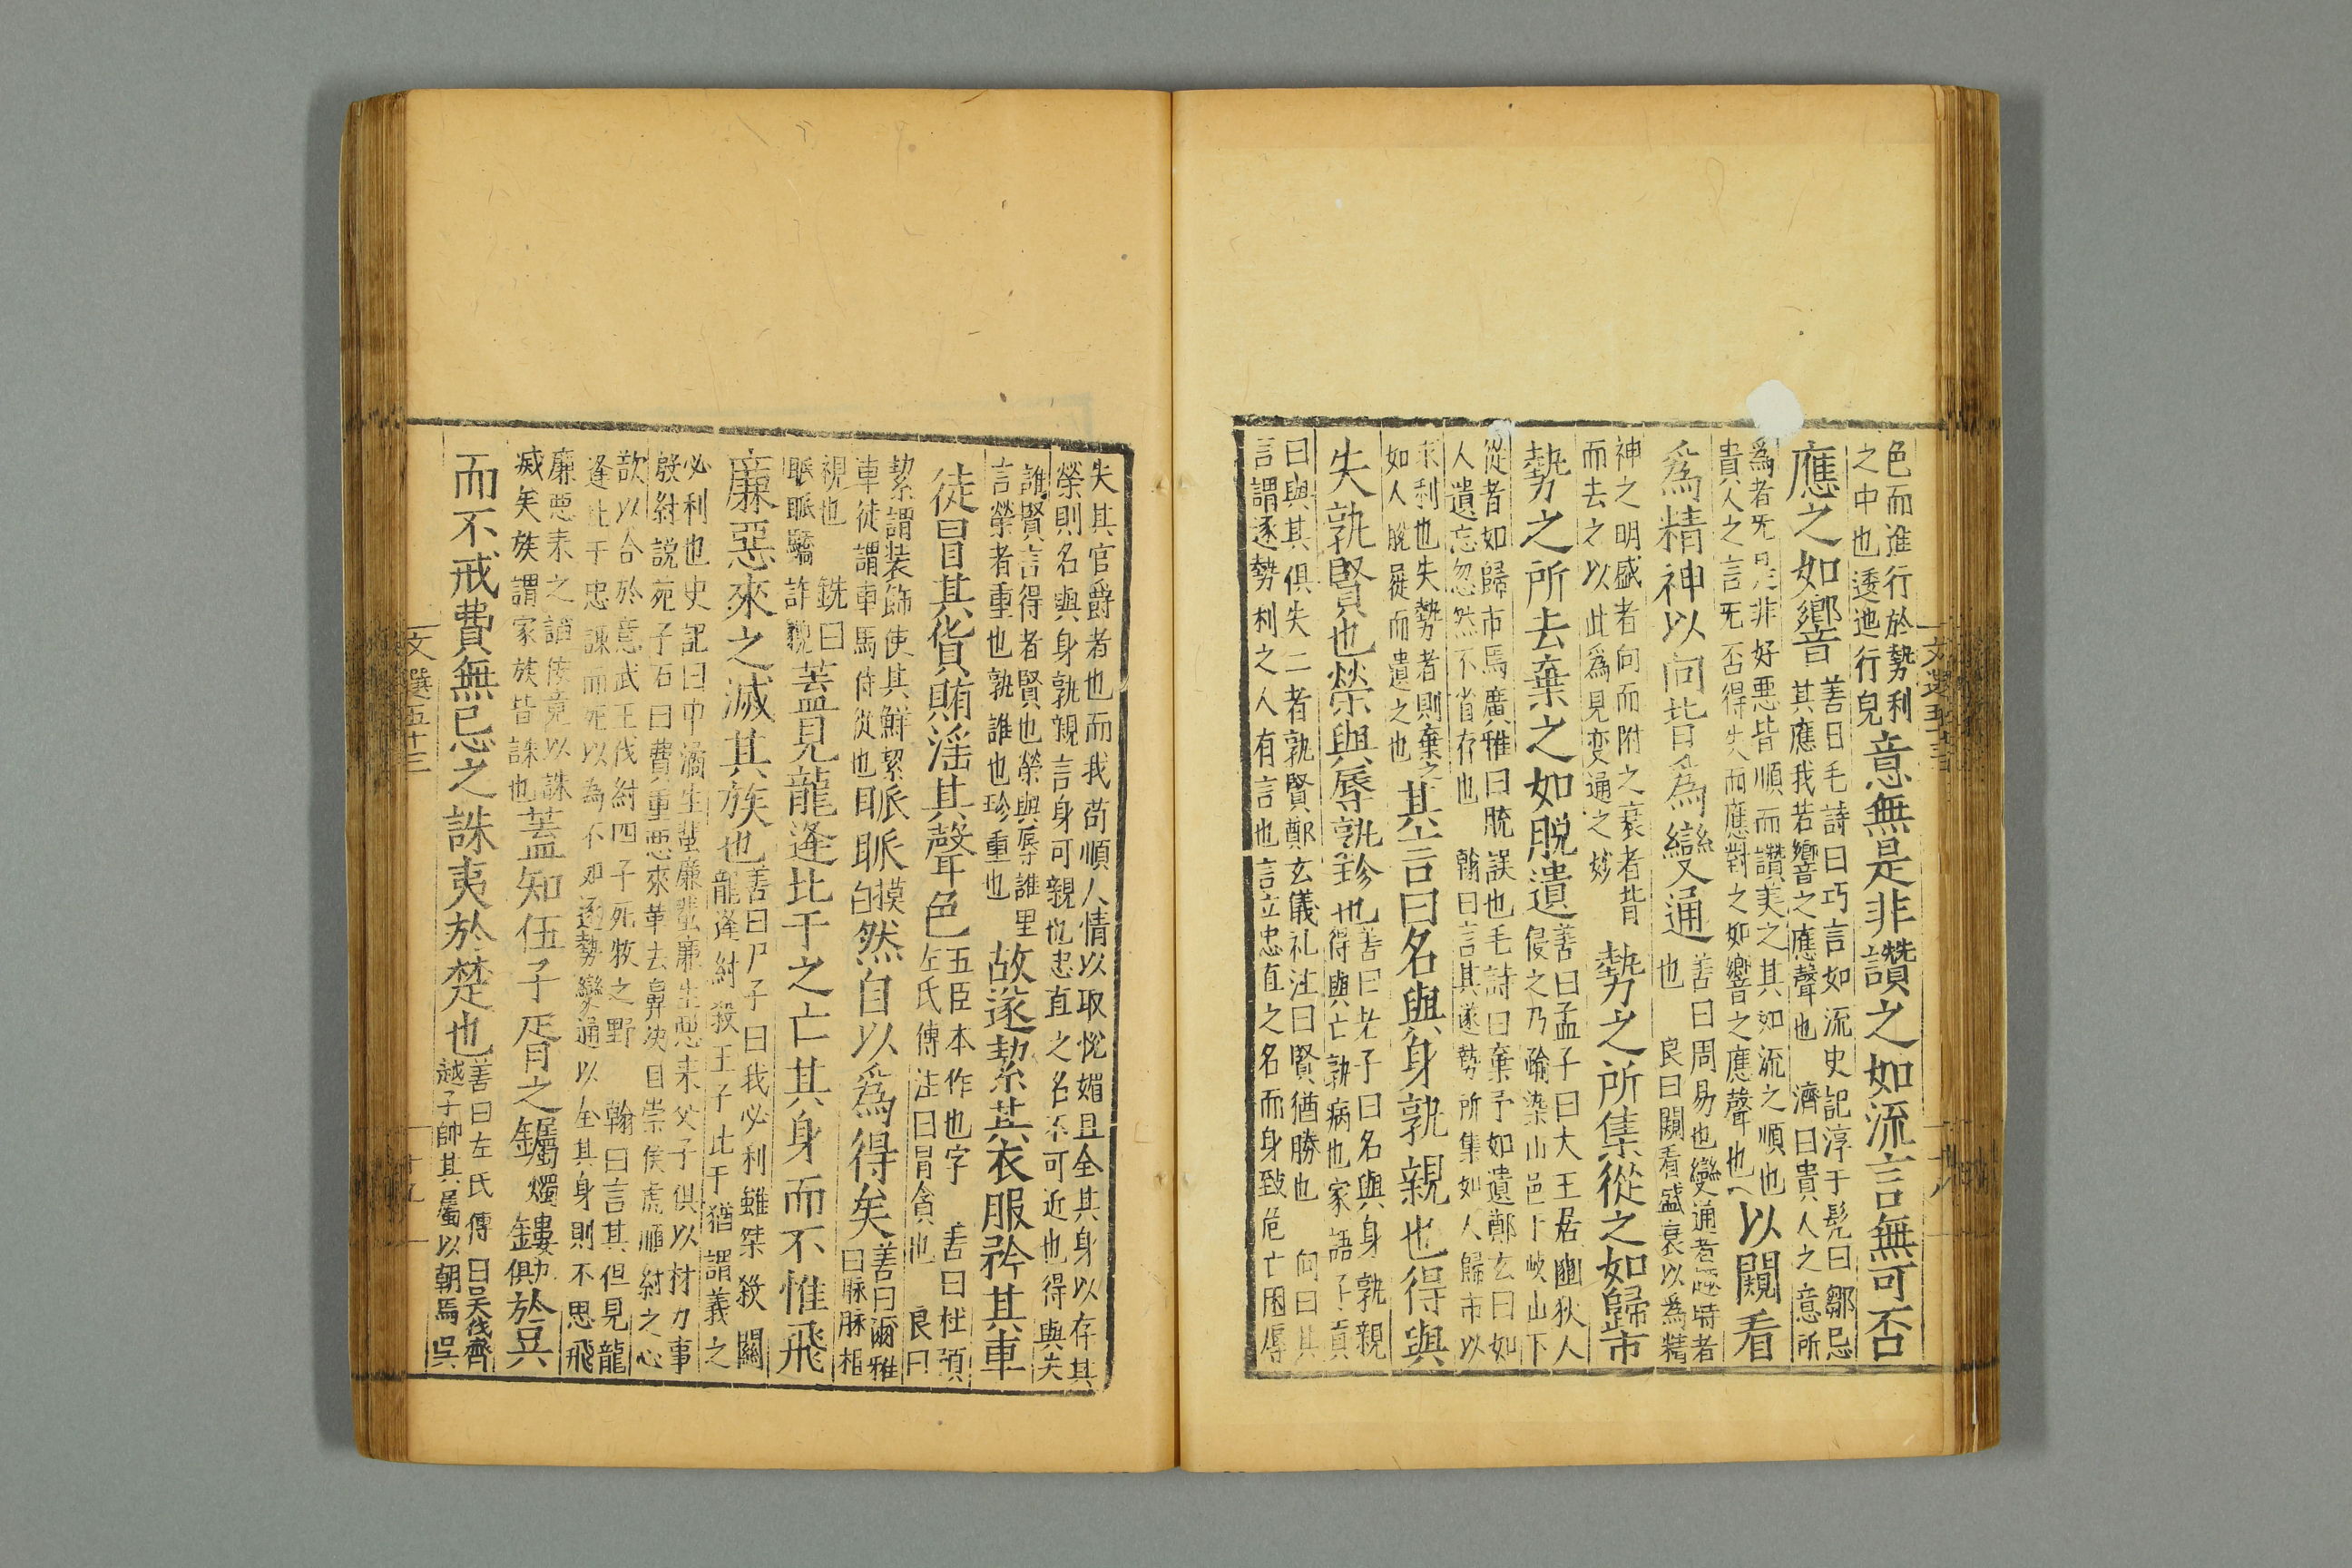 色而進行於勢利
之中也逶迆行皃
意無是非讚之如流言無可否
應之如響
善曰毛詩曰巧言如流史記淳于髡曰鄒忌
其應我若響之應聲也 濟曰貴人之意所
為者无是非好惡皆順而讚美之其如流之順也
貴人之言无否得失而應對之如響之應聲也
以闚看
爲精神以向背爲變通
善曰周易也變通者趣時者
也 良曰闚看盛衰以爲精
神之明盛者向而附之衰者背
而去之以此爲見変通之妙
勢之所集從之如歸市
勢之所去棄之如脫遺
善曰孟子曰大王居豳狄人
侵之乃踰梁山邑于岐山下
從者如歸市焉廣雅曰脫誤也毛詩曰棄予如遺鄭玄曰如
人遺忘忽然不省存也 翰曰言其逐勢所集如人歸市以
求利也失勢者則棄之
如人脫屣而遺之也
其言曰名與身孰親也得與
失孰賢也榮與辱孰珍也
善曰老子曰名與身孰親
得與亡孰病也家語子貢
曰與其俱失二者孰賢鄭玄儀礼注曰賢猶勝也 向曰其
言謂逐勢利之人有言也言立忠直之名而身致危亡困辱
文選五十三
十八
失其官爵者也而我苟順人情以取悅媚且全其身以存其
榮則名與身孰親言身可親也忠直之名不可近也得與失
誰賢言得者賢也榮與辱誰里
言榮者重也孰誰也珍重也
故遂絜其衣服矜其車
徒冒其貨賄淫其聲色
五臣本作也字 善曰杜預
左氏傳注曰冒貪也 良曰
絜謂装飾使其鮮絜
車徒謂車馬侍從也
脈脈
摸
白
然自以爲得矣
善曰爾雅
曰脉脉相
視也 銑曰
脈脈驕詐貌
蓋見龍逢比干之亡其身而不惟飛
廉惡來之滅其族也
善曰尸子曰我必利雖桀殺關
龍逢紂殺王子比干猶謂義之
必利也史記曰中潏生蜚廉蜚廉生惡来父子俱以材力事
殷紂說苑子石曰費重惡來革去鼻决目崇侯虎順紂之心
欲以合於意武王伐紂四子死牧之野 翰曰言其但見龍
逢比干忠諫而死以為不如逐勢變通以全其身則不思飛
廉惡来之諂佞竟以誅
滅矣族謂家族皆誅也
蓋知伍子胥之鐲
燭
鏤
力俱
於吳
而不戒費無忌之誅夷於楚也
善曰左氏傳曰吴伐齊
越子帥其屬以朝焉吳
文選五十三
十九